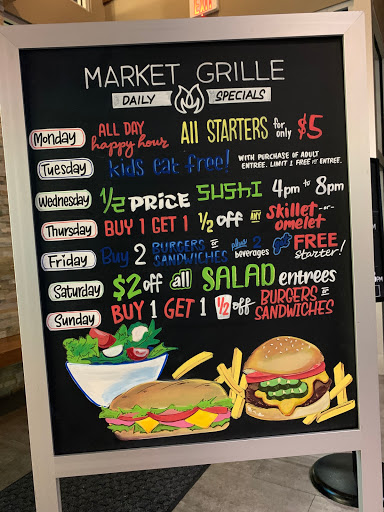 MARKET GRILLE
DAILY SPECIALS
Monday ALL DAY happy hour All STARTERS for only $5
Tuesday kids eat free! WITH PURCHASE OF ADULT ENTREE. LIMIT 1 FREE PER ENTREE.
Wednesday 1/2 PRICE SUSHI 4pm to 8pm
Thursday BUY 1 GET 1 1/2 off ANY skillet -or- omelet
Friday Buy 2 BURGERS or SANDWICHES plus 2 beverages get FREE starter!
Saturday $2 off all SALAD entrees
Sunday BUY 1 GET 1 1/2 off BURGERS or SANDWICHES